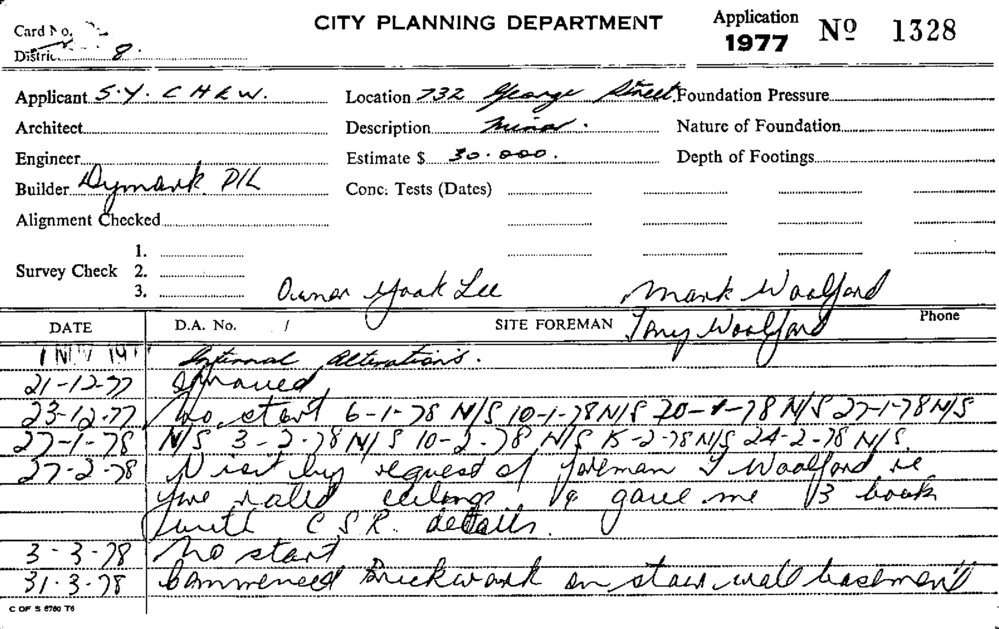 CITY PLANNING DEPARTMENT
Application
1977
No 1328
Card No.
District 8.
Applicant S.Y. CHEW.
Location 732 George Street
Foundation Pressure
Architect
Description Minor.
Nature of Foundation
Engineer
Estimate $ 30.000.
Depth of Footings
Builder Dymark P/L
Conc. Tests (Dates)
Alignment Checked
Survey Check
1.
2.
3.
Owner Yook Lee
Mark Woolford
DATE
D.A. No. /
SITE FOREMAN Tony Woolford
Phone
1 NOV 197 Internal Alterations.
21-12-77
23-12-77 No start 6-1-78 N/S 10-1-78 N/S 20-1-78 N/S 27-1-78 N/S
27-1-78 N/S 3-2-78 N/S 10-2-78 N/S 15-2-78 N/S 24-2-78 N/S.
27-2-78 Visit by request of foreman T Woolford re
fire rated ceilings gave me books
with C.S.R. details.
3-3-78 No start
31.3.78 Commenced Brickwork on stair wall basement
C OF S 6760 T6